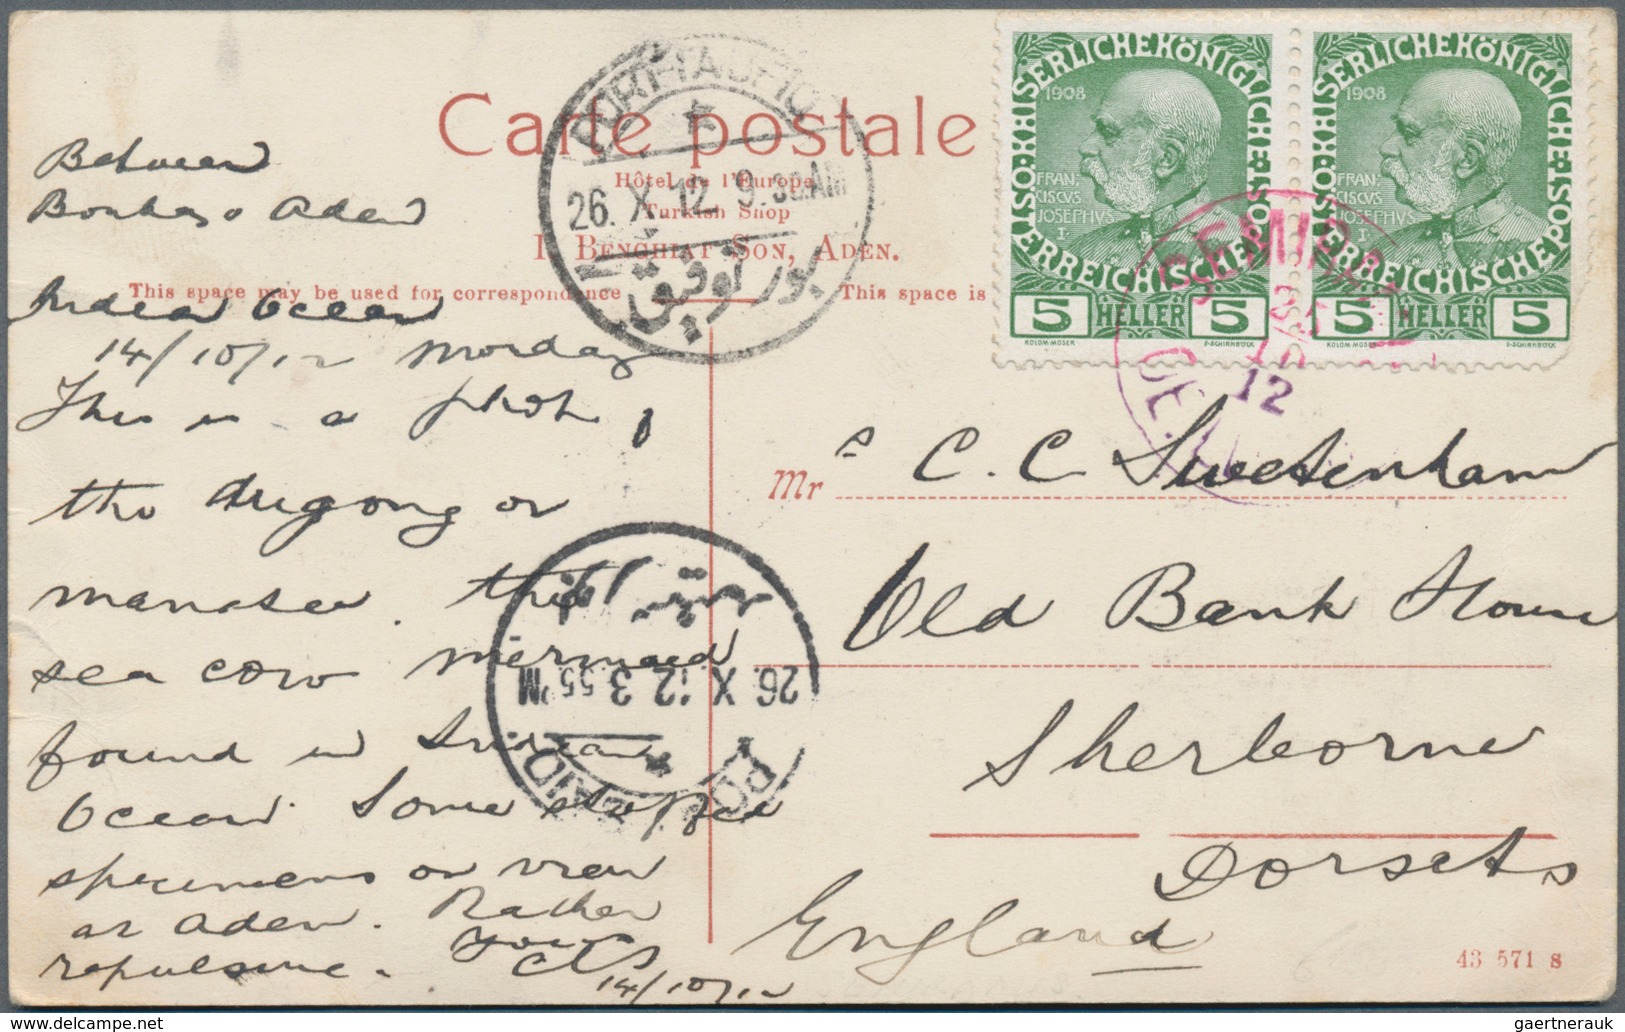 Carte postale
Hôtel de l'Europe
Turkish Shop
I. BENGHIAT SON, ADEN.
This space may be used for correspondence
This space is
Between
Bombay & Aden
Indian Ocean
14/10/12 Monday
This is a photo
the dugong or
manatee. this
sea cow mermaid
found in Indian
Ocean. Some stuffed
specimens on view
at Aden. Rather
repulsive.
Yours
14/10/12
PORT-TAUFIQ
26. X. 12. 9.30 AM
بور توفيق
26. X. 12. 3.55 PM
KAISERLICHE KÖNIGLICHE ÖSTERREICHISCHE POST
1908
FRAN-
CISCVS
IOSEPHVS
I.
5 HELLER 5
KOLOM. MOSER
F. SCHIRNBÖCK
KAISERLICHE KÖNIGLICHE ÖSTERREICHISCHE POST
1908
FRAN-
CISCVS
IOSEPHVS
I.
5 HELLER 5
KOLOM. MOSER
F. SCHIRNBÖCK
12
Mr C. C. Swetenham
Old Bank House
Sherborne
Dorsets
England
43 571 s
gaertnerauk on delcampe.net